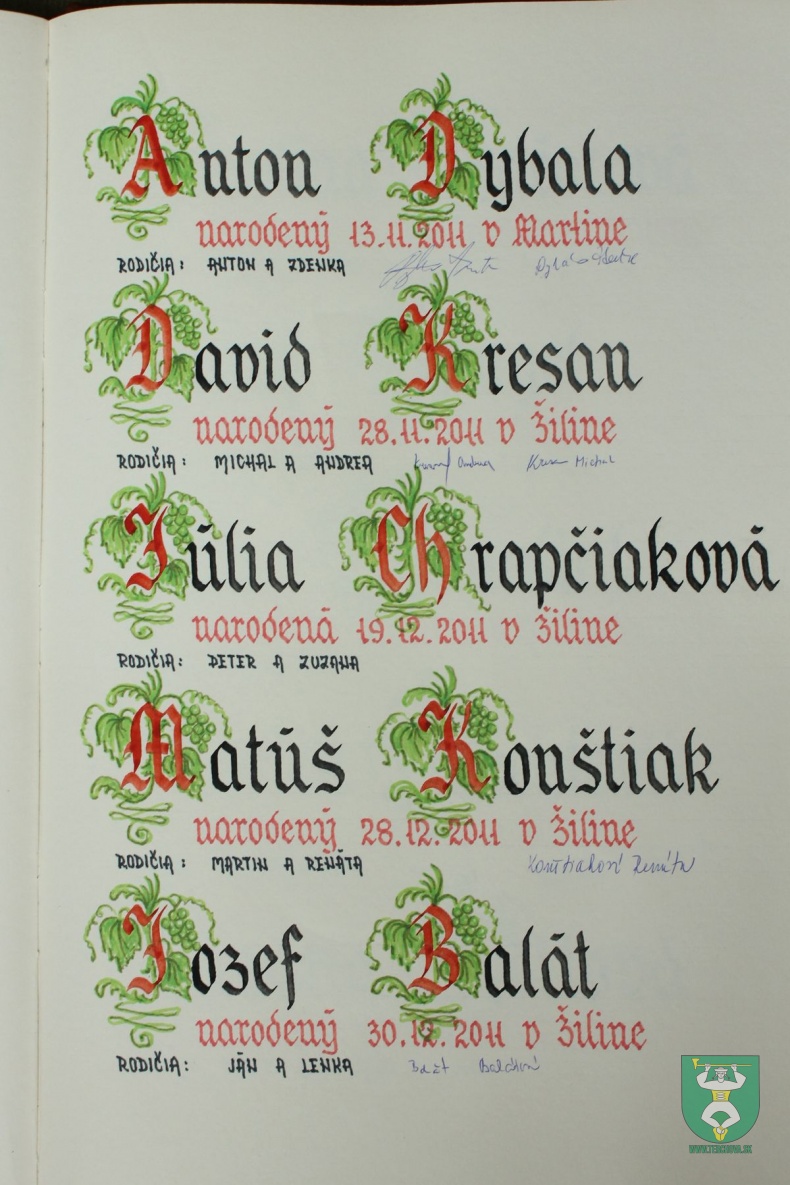 Anton Dybala
narodený 13.11.2011 v Martine
RODIČIA: ANTON A ZDENKA
David Kresan
narodený 28.11.2011 v Žiline
RODIČIA: MICHAL A ANDREA Andrea Kresan Michal
Júlia Chrapčiaková
narodená 19.12.2011 v Žiline
RODIČIA: PETER A ZUZANA
Matúš Kouštiak
narodený 28.12.2011 v Žiline
RODIČIA: MARTIN A RENÁTA Renáta
Jozef Balát
narodený 30.12.2011 v Žiline
RODIČIA: JÁN A LENKA
WWW.TERCHOVA.SK